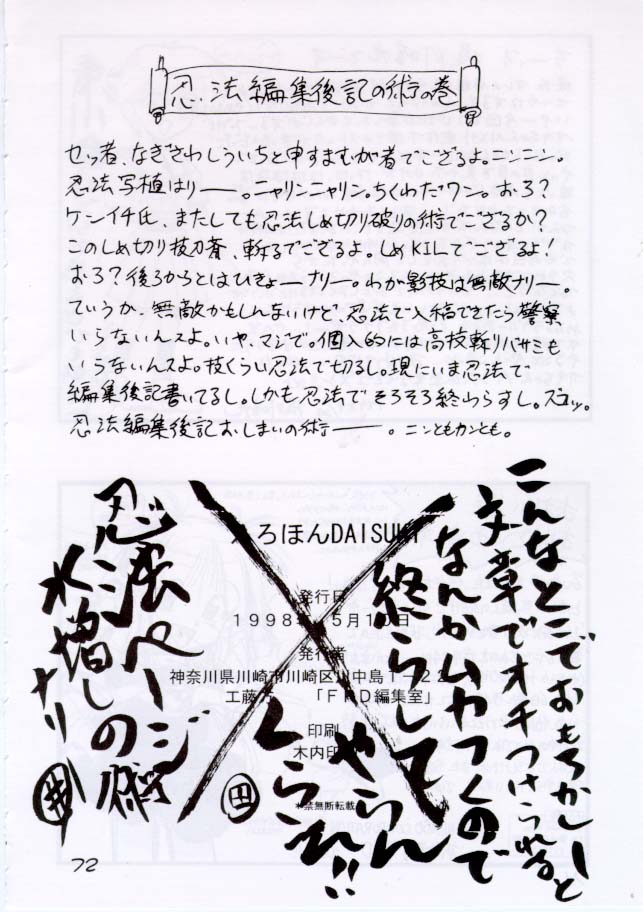 忍法編集後記の術の巻
セッ者、なぎさわしういちと申すまむが者でござるよ。ニンニン。
忍法写植はりー。ニャリンニャリン。ちくわだワン。おろ？
ケンイチ氏、またしても忍法しめ切り破りの術でござるか？
このしめ切り抜刀斎、斬るでござるよ。しめKILでござるよ！
おろ？後ろからとはひきょーナリー。わが影技は無敵ナリー。
ていうか、無敵かもしんまいけど、忍法で入稿できたら警察
いらないんスよ。いや、マジで。個人的には高枝斬りバサミも
いらないんスよ。枝くらい忍法で切るし。現にいま忍法で
編集後記書いてるし。しかも忍法でそろそろ終わらすし。ズコッ。
忍法編集後記おしまいの術ー。ニンともカンとも。
こんなとこでおもろかしーと
文章でオチつけられると
なんかムカつくので
終らしてやらん
くらえ!!
田
えろほんDAISUKI
発行日
1998年5月10日
発行者
神奈川県川崎市川崎区川中島1-22
工藤 「FRD編集室」
印刷
木内印
*禁無断転載
忍法ページ
水増しの術
ナリ
井
72